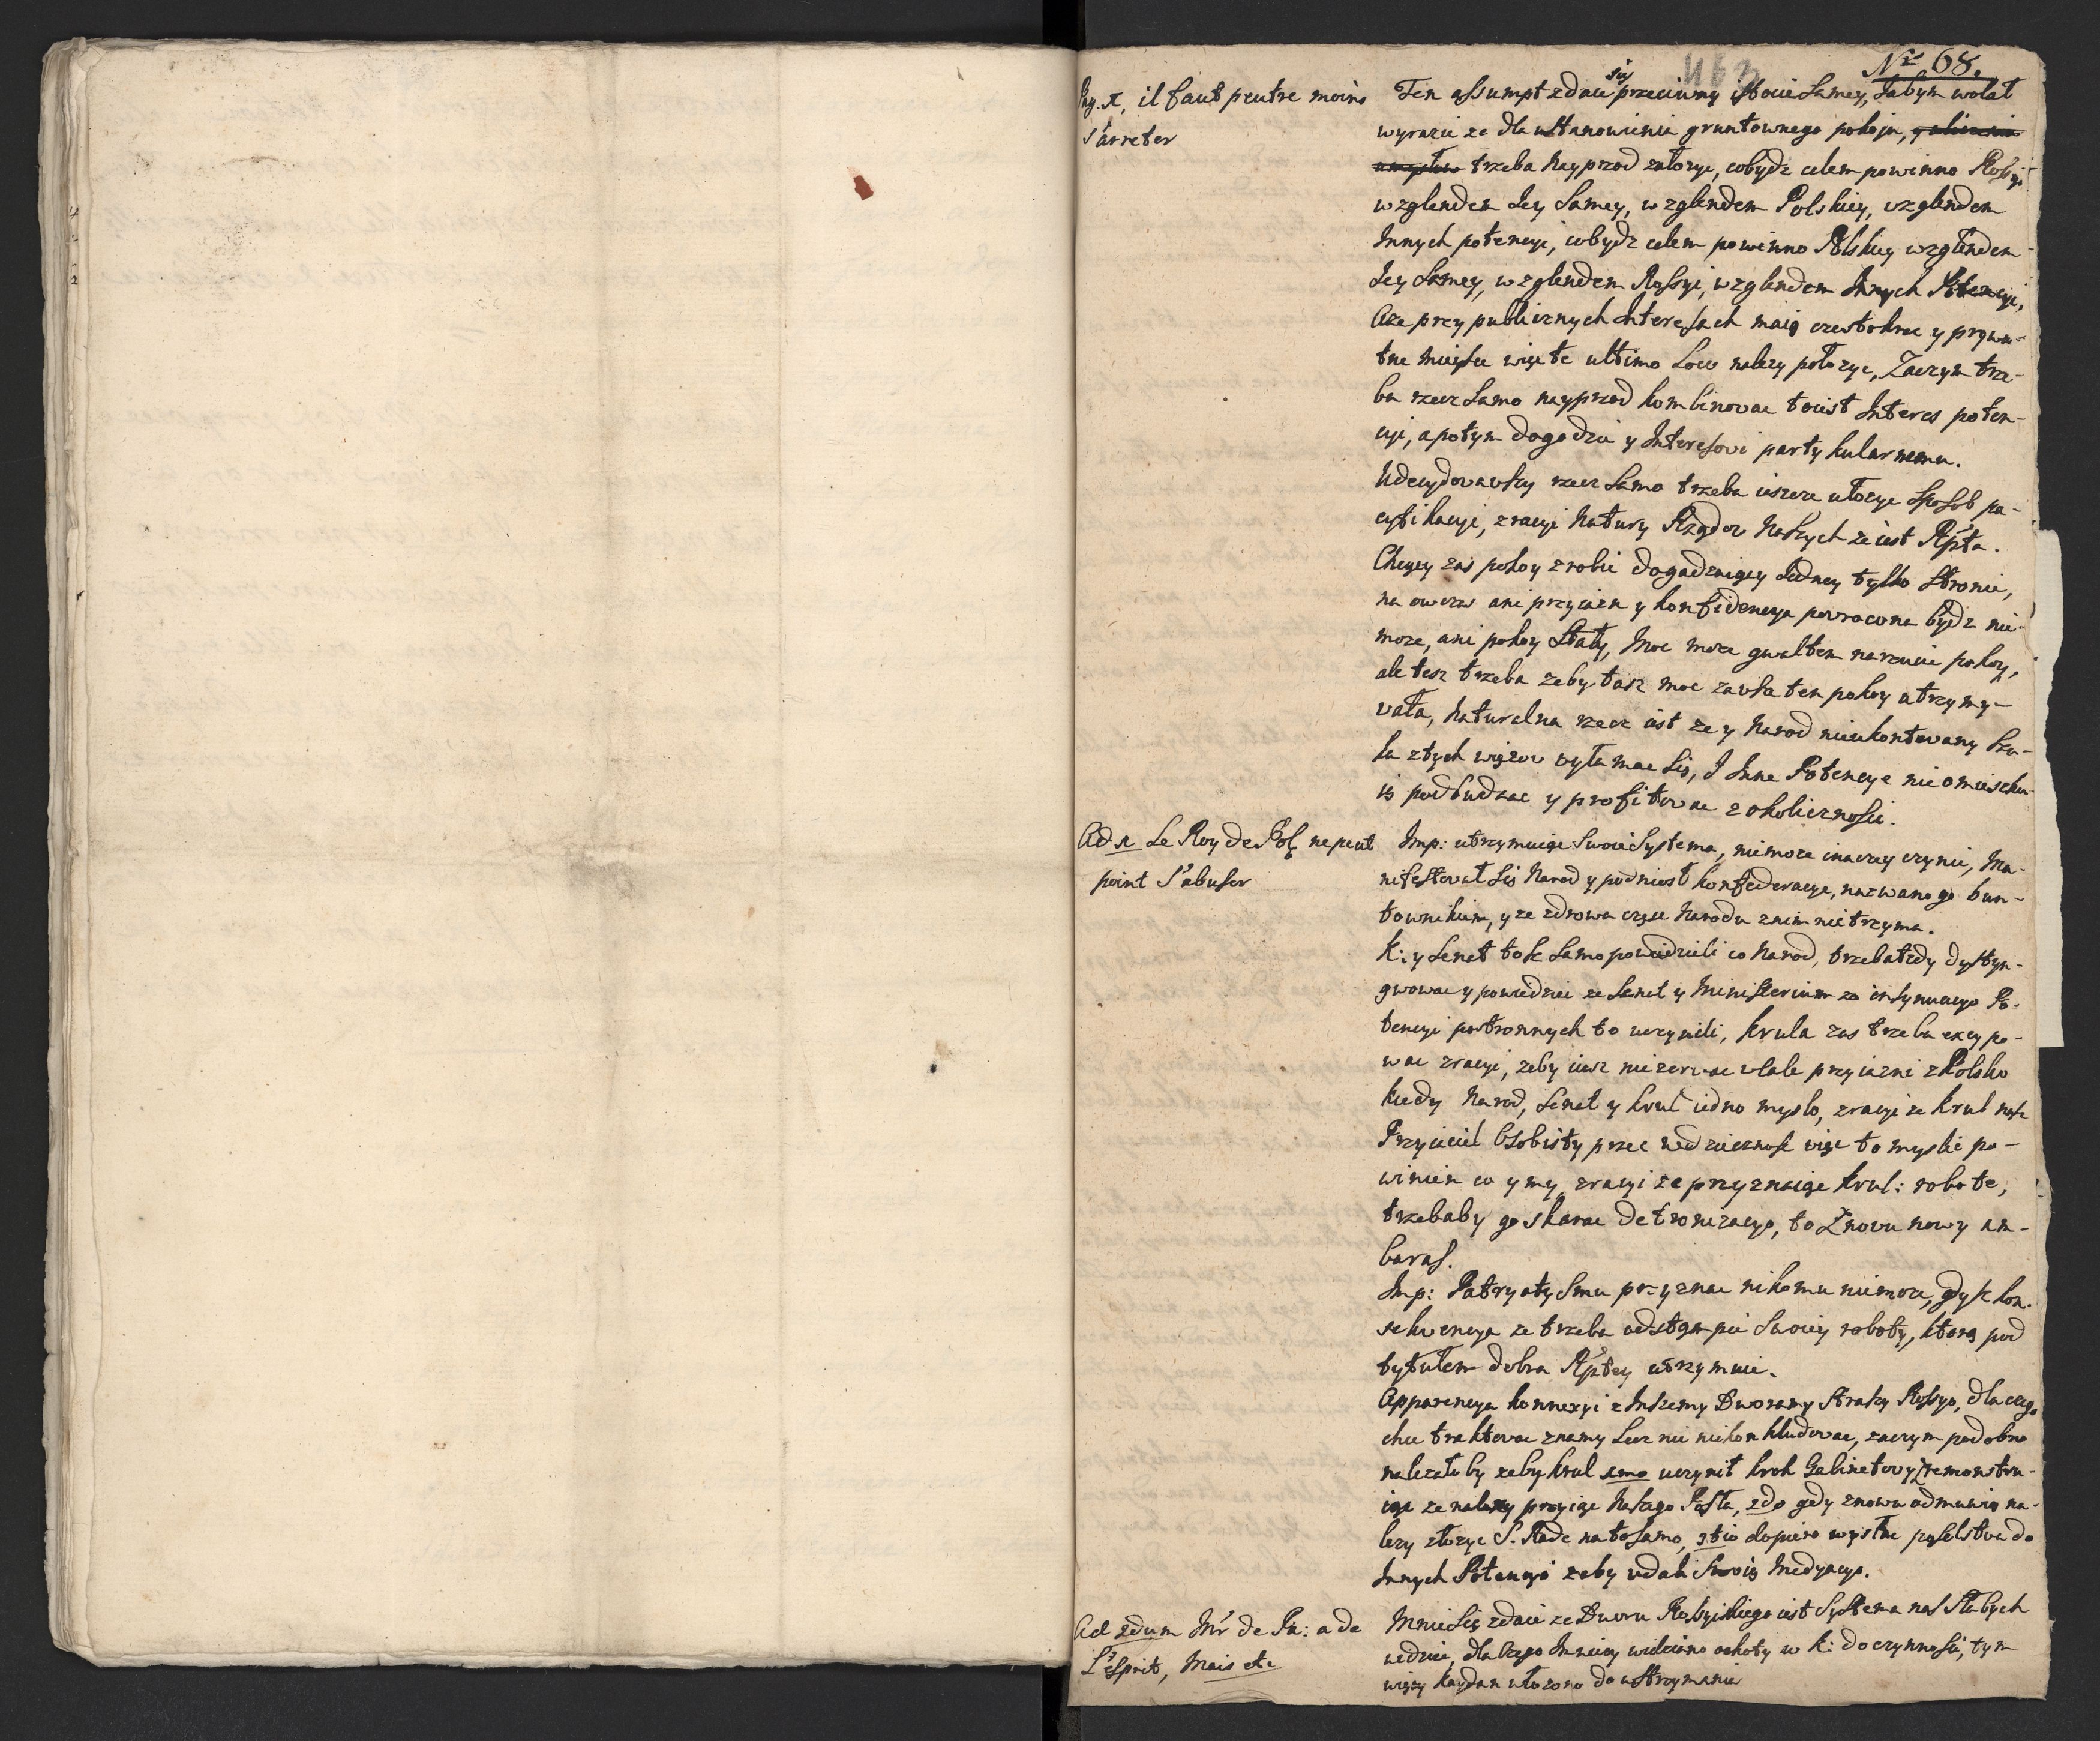 463
Nro 68.
Pag. 1, il faut peutre moins
s'arreter
Ten assumpt zdaie się przeciwny istocie samey, Jabym wolał
wyrazic ze dla ustanowienia gruntownego pokoju,
trzeba nayprzod załozyc, cobydz celem powinno Rossyi
wzglendem Jey samey, wzglendem Polskiey, wzglendem
Innych potencyi, cobydz celem powinno Polskiey wzglendem
Jey samey, wzglendem Rossyi, wzglendem Innych Potencyi,
Aze przy publicznych Interesach maią czestokroc y prywa-
tne mieysce więc te ultimo loco nalezy połozyc, Zaczym trze-
ba rzecz samo nayprzod kombinovac toiest Interes poten-
cyi, a potym dogodzic y Interesovi partykularnemu.
Udecydovavszy rzecz samo trzeba ieszcze ułozyc sposob pa-
cyfikacyi, zracyi Natury Rządow Naszych ze iest Rpta.
Chcący zas pokoy zrobic dogadzaiący Jedney tylko stronie,
na owczas ani przyiazn y konfidencya povrocona bydz nie
moze, ani pokoy stały, Moc moze gwaltem narzucic pokoy,
ale tesz trzeba zeby tasz moc zavsze ten pokoy utrzymy-
vała, Naturalna rzecz iest ze y Narod nieukontovany szu-
ka ztych więzov wyłamac się, I Inne Potencye nie omieszku-
ią podbudzac y profitovac z okolicznosci.
Ad 1 Le Roy de Pol. ne peut
point s'abuser
Imp: utrzymuiąc swoie Systema, niemoze inaczey czynic, Ma-
nifestovał się Narod y podniosł konfederacye, nazwano go bun-
townikiem, y ze zdrowa częsc Narodu znim nietrzyma.
K: y Senat tosz samo powiedzieli co Narod, trzeba tedy dystyn-
gwowac y powiedziec ze Senat y Ministerium za insynuacyo Po-
tencyi postronnych to uczynili, krula zas trzeba excypo-
wac zracyi, zeby iusz niezervac vcale przyiazni z Polsko
kiedy Narod, Senat y krul iedno myslo, zracyi ze krul nasz
Przyiaciel Osobisty przez wdzięcznosc więc to myslic po-
winien co y my, zracyi ze przyznaiąc krul: robote,
trzebaby go skarac detronizacyo, to Znovu nowy am-
baras.
Imp: Patryotysmu przyznac nikomu niemoze, gdysz kon-
sekwencya ze trzeba odstąmpic swoiey roboty, ktorą pod
tytułem dobra Rptey utrzymuie.
Apparencya konnexyi z Inszemy Dworamy straszy Rossyo, dla czego
chce traktovac znamy Lecz nic niekonkludovac, zaczym podobno
nalezałoby zeby krul 1mo uczynił krok Gabinetovy remonstru-
iąc ze nalezy przyiąc Naszego Posła, 2do gdy znowu odmuwio na-
lezy złozyc S. Rade na tosamo, 3tio dopiero wysłac poselstva do
Innych Potencyi zeby vdali Swoią Medyacyo.
Ad 2dum Mr de Pa: a de
L'esprit, Mais etc
Mnie się zdaie ze Dworu Rossyiskiego iest Systema nas słabych
widziec, dla czego Im wiency widziano ochoty w K: do czynnosci, tym
więcy kaydan włozono do wstrzymania